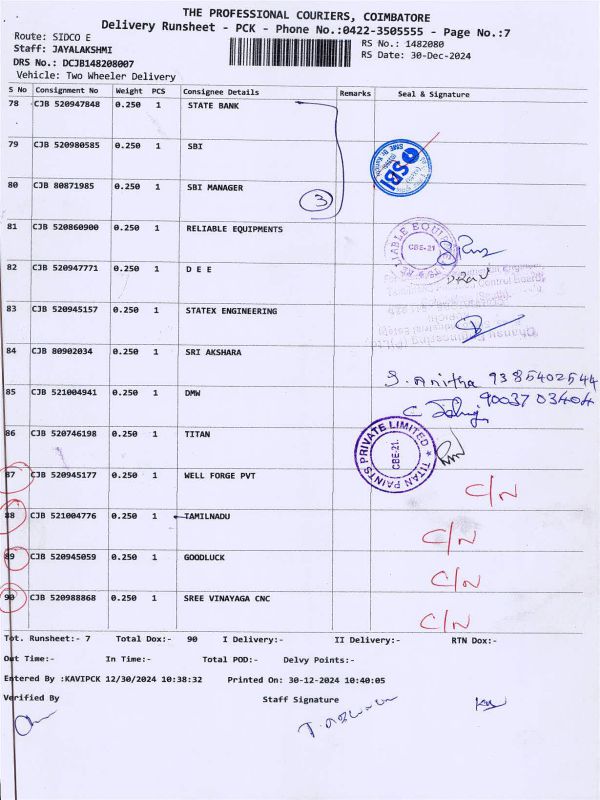 THE PROFESSIONAL COURIERS, COIMBATORE
Delivery Runsheet - PCK - Phone No.:0422-3505555 - Page No.:7
Route: SIDCO E
RS No.: 1482080
Staff: JAYALAKSHMI
RS Date: 30-Dec-2024
DRS No.: DCJB148208007
Vehicle: Two Wheeler Delivery
S No Consignment No Weight PCS Consignee Details Remarks Seal & Signature
78 CJB 520947848 0.250 1 STATE BANK
79 CJB 520980585 0.250 1 SBI
SBI
80 CJB 80871985 0.250 1 SBI MANAGER
3
81 CJB 520860900 0.250 1 RELIABLE EQUIPMENTS
RELIABLE EQUIPMENTS
CBE-21
82 CJB 520947771 0.250 1 D E E
83 CJB 520945157 0.250 1 STATEX ENGINEERING
84 CJB 80902034 0.250 1 SRI AKSHARA
S. Anitha 9385402544
85 CJB 521004941 0.250 1 DMW
9003703404
86 CJB 520746198 0.250 1 TITAN
TITAN PAINTS PRIVATE LIMITED
CBE-21.
87 CJB 520945177 0.250 1 WELL FORGE PVT C/N
88 CJB 521004776 0.250 1 TAMILNADU C/N
89 CJB 520945059 0.250 1 GOODLUCK C/N
90 CJB 520988868 0.250 1 SREE VINAYAGA CNC C/N
Tot. Runsheet:- 7 Total Dox:- 90 I Delivery:- II Delivery:- RTN Dox:-
Out Time:- In Time:- Total POD:- Delvy Points:-
Entered By :KAVIPCK 12/30/2024 10:38:32 Printed On: 30-12-2024 10:40:05
Verified By Staff Signature